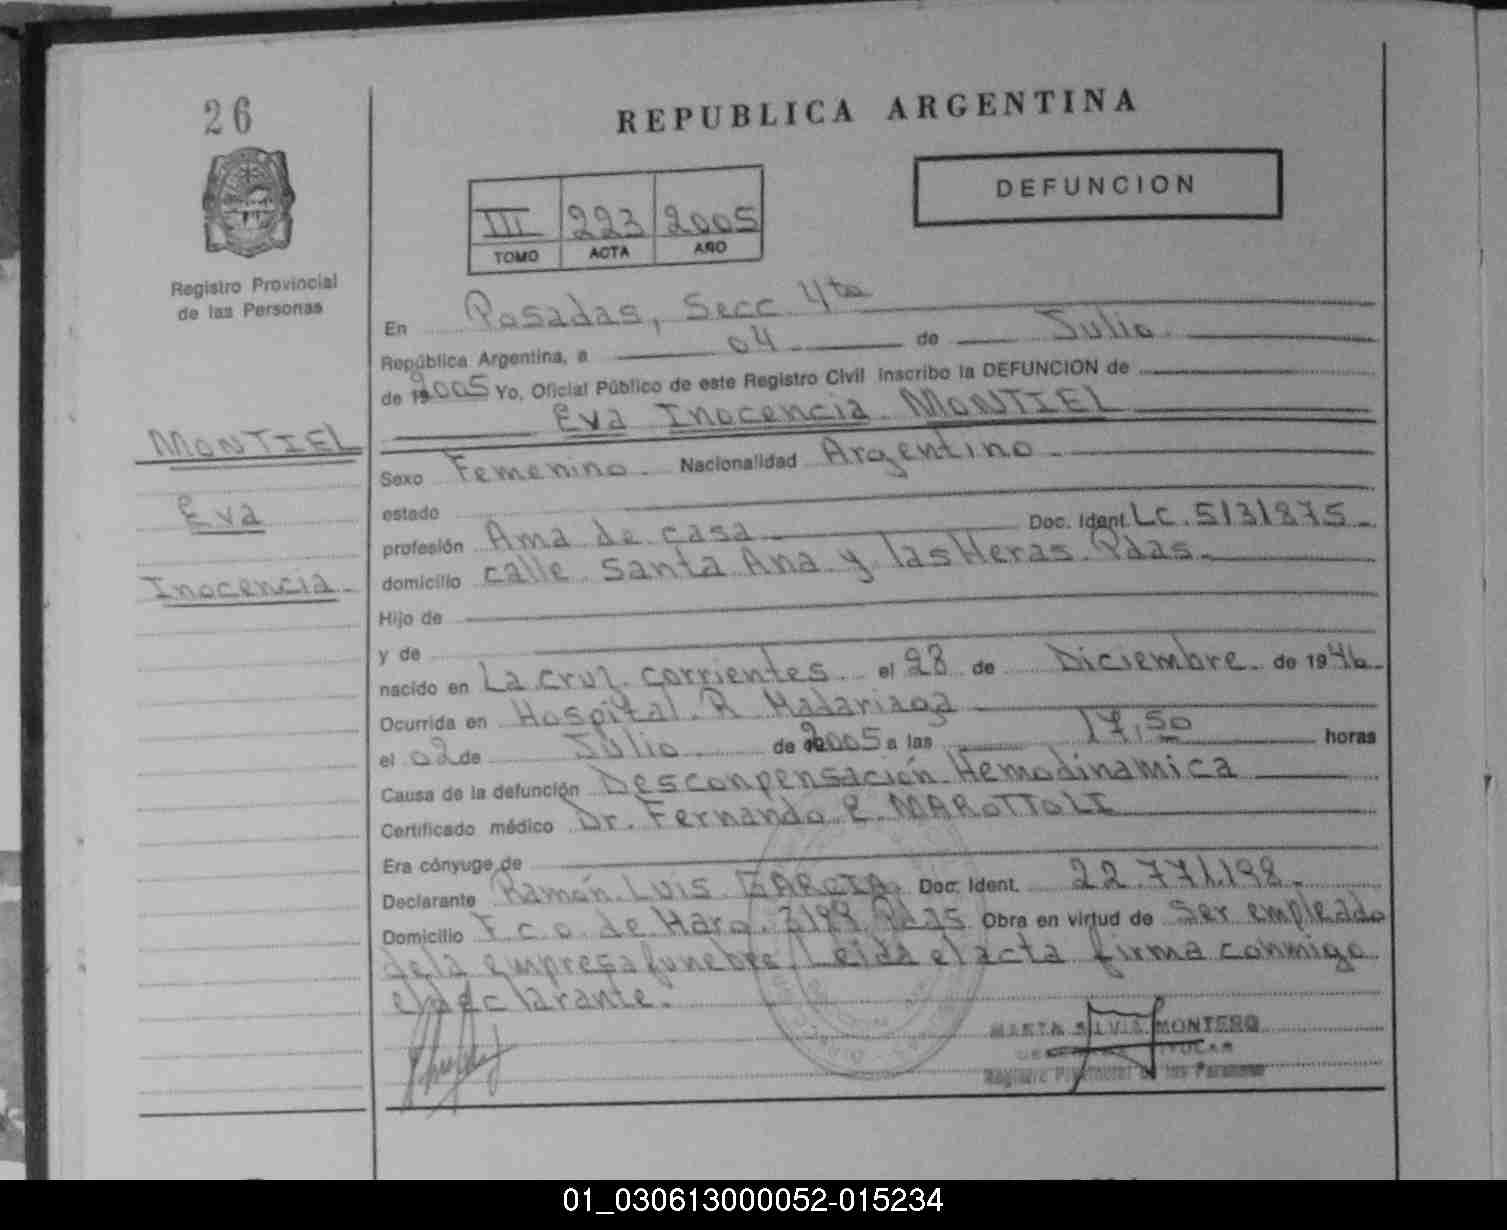 26
REPUBLICA ARGENTINA
DEFUNCION
III 223 2005
TOMO ACTA AÑO
Registro Provincial
de las Personas
En Posadas, Secc 4ta
República Argentina, a 04 de Julio
de 2005 Yo, Oficial Público de este Registro Civil inscribo la DEFUNCION de
Eva Inocencia MONTIEL
MONTIEL
Eva
Inocencia
Sexo Femenino Nacionalidad Argentino
estado
profesión Ama de casa Doc. Ident. LC. 5131875
domicilio calle Santa Ana y las Heras Pdas
Hijo de
y de
nacido en La cruz corrientes el 28 de Diciembre de 1946
Ocurrida en Hospital R Madariaga
el 02 de Julio de 2005 a las 17,50 horas
Causa de la defunción Desconpensación Hemodinamica
Certificado médico Dr. Fernando MAROTTOLI
Era cónyuge de
Declarante Ramón Luis GARCIA Doc. Ident. 22.771.198
Domicilio F.c.o. de Haro 3199 Pdas Obra en virtud de Ser empleado
de la empresa funebre. Leida el acta firma conmigo
el declarante.
MARTA SILVIA MONTERO
Registro Provincial de las Personas
01_030613000052-015234